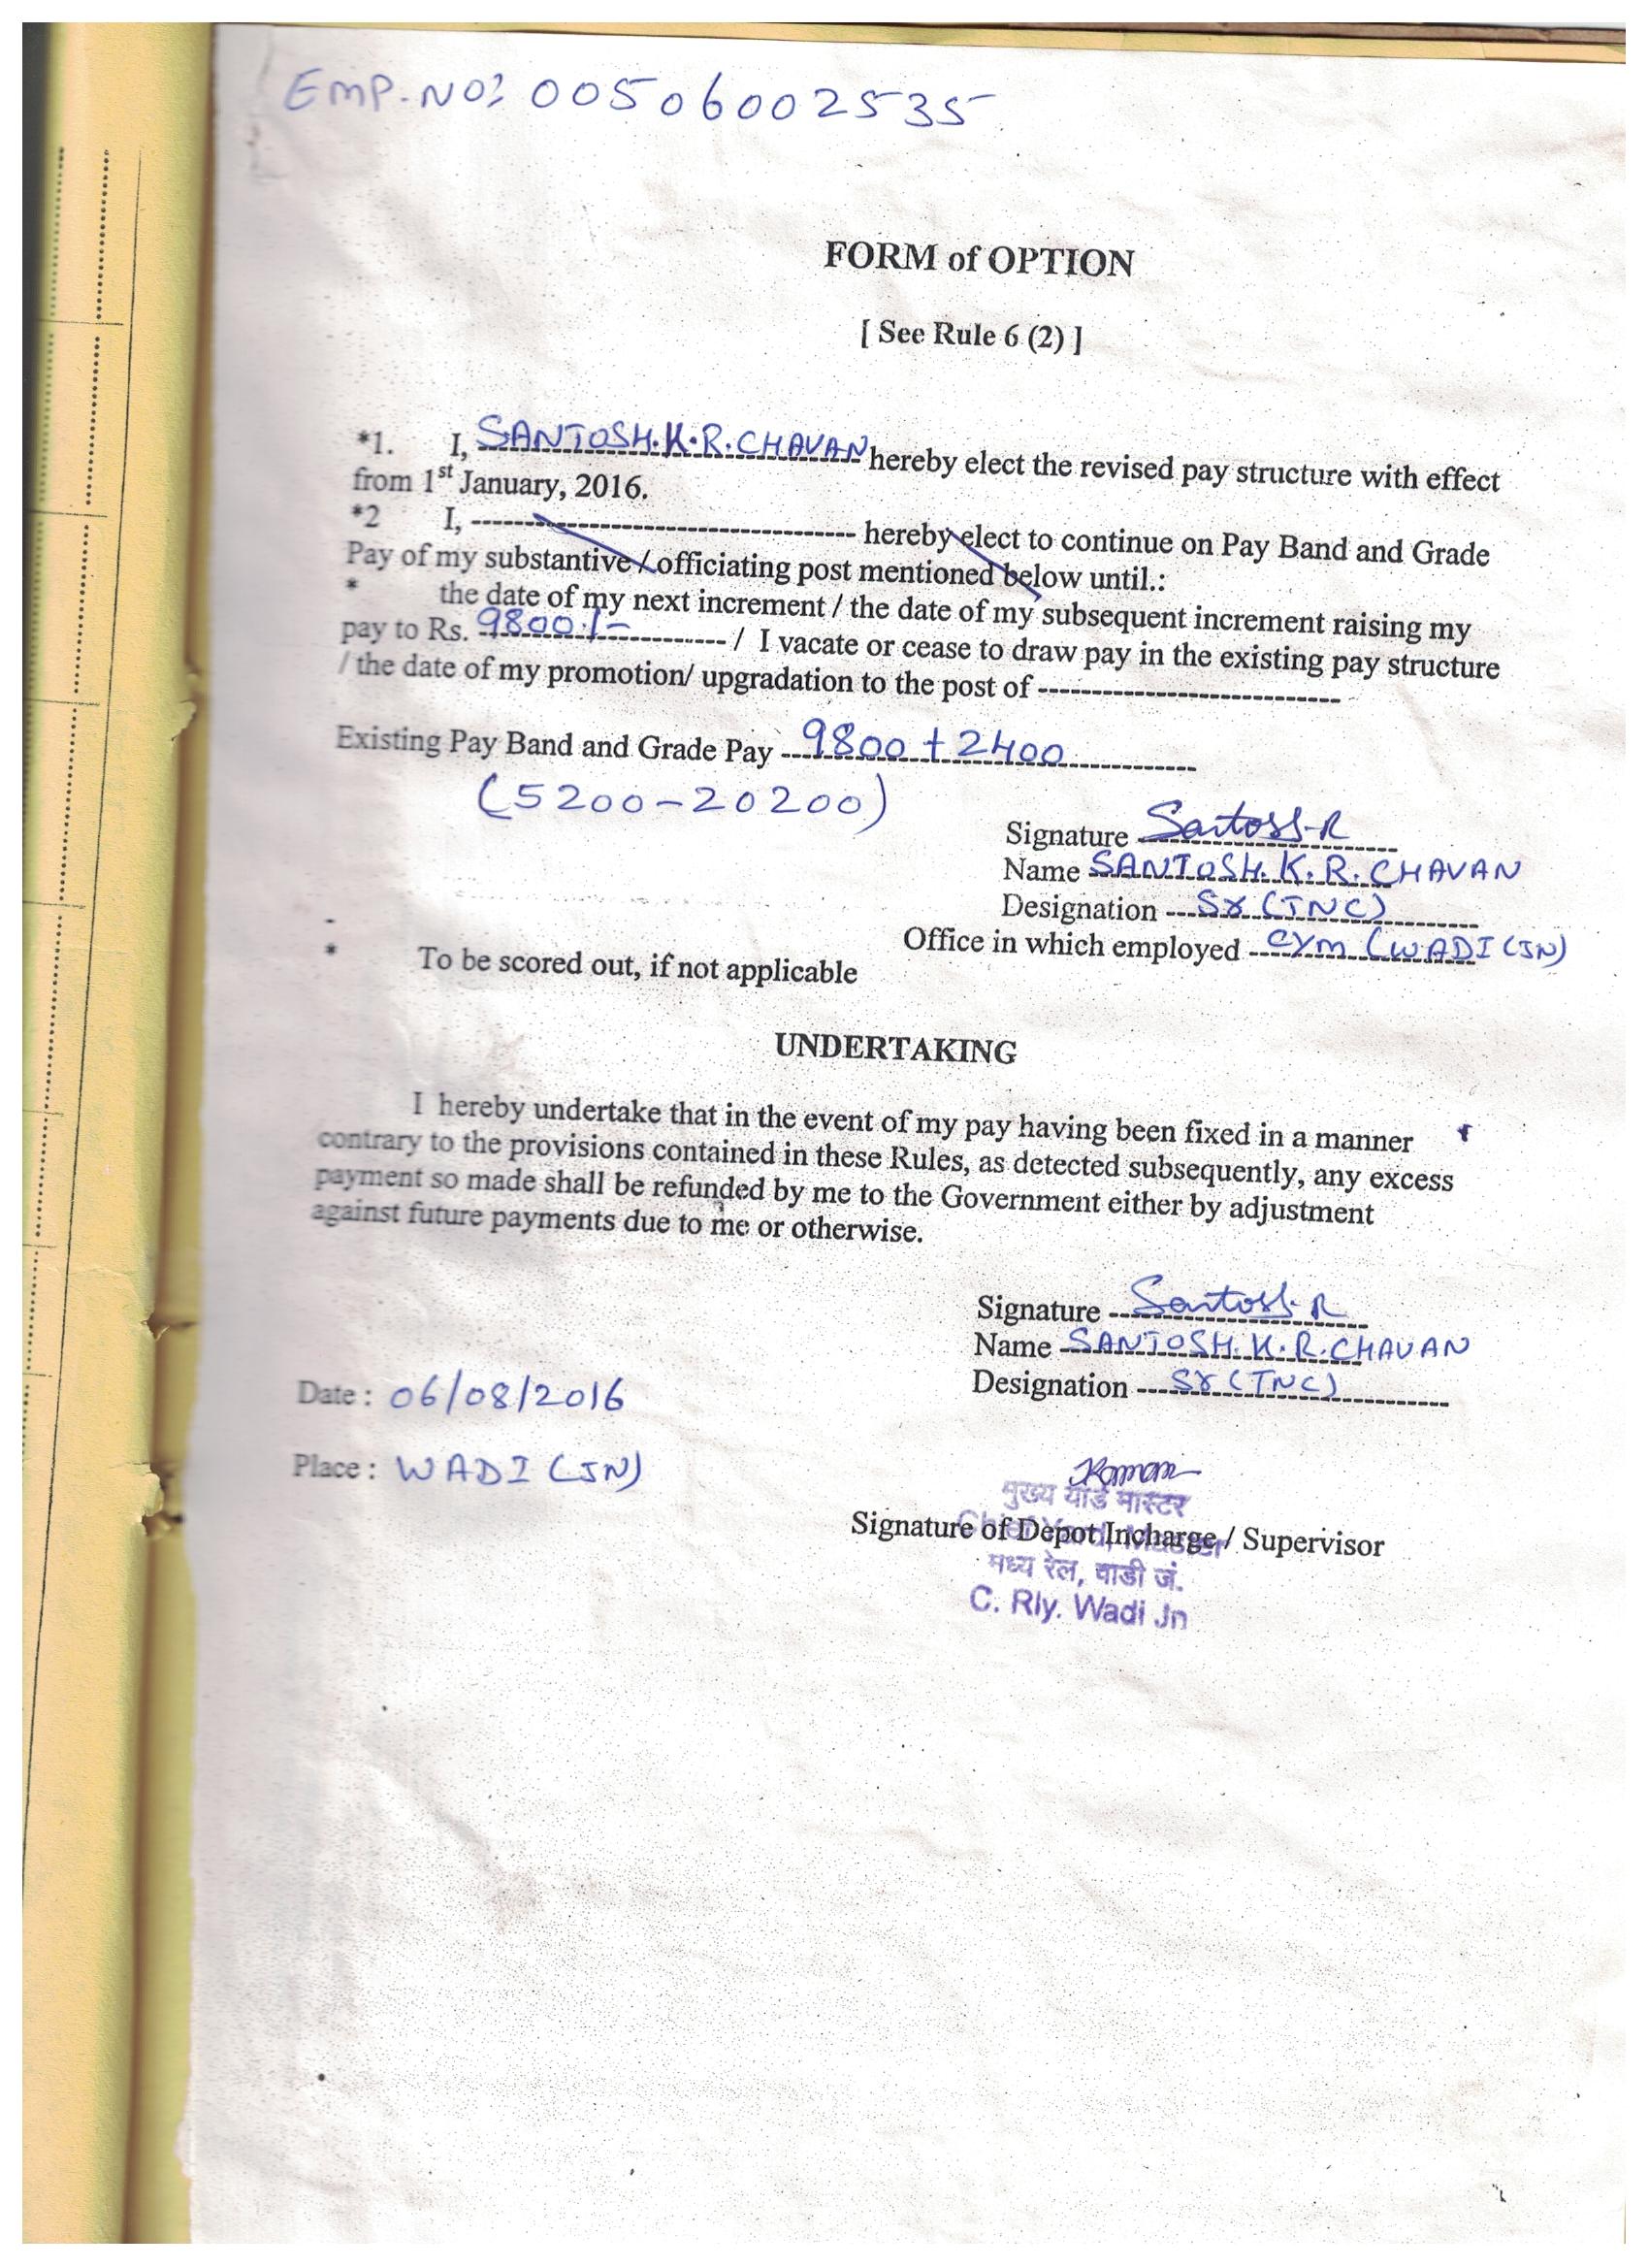 EMP.NO: 00506002535
FORM of OPTION
[ See Rule 6 (2) ]
*1. I, SANTOSH.K.R.CHAVAN hereby elect the revised pay structure with effect
from 1st January, 2016.
*2 I, ------------------------------------ hereby elect to continue on Pay Band and Grade
Pay of my substantive / officiating post mentioned below until.:
* the date of my next increment / the date of my subsequent increment raising my
pay to Rs. 9800/- / I vacate or cease to draw pay in the existing pay structure
/ the date of my promotion/ upgradation to the post of ----------------------------
Existing Pay Band and Grade Pay 9800 + 2400
(5200-20200)
Signature Santosh.R
Name SANTOSH.K.R.CHAVAN
Designation Sr (TNC)
Office in which employed CYM (WADI (JN)
* To be scored out, if not applicable
UNDERTAKING
I hereby undertake that in the event of my pay having been fixed in a manner
contrary to the provisions contained in these Rules, as detected subsequently, any excess
payment so made shall be refunded by me to the Government either by adjustment
against future payments due to me or otherwise.
Signature Santosh.R
Name SANTOSH.K.R.CHAVAN
Designation Sr (TNC)
Date : 06/08/2016
Place : WADI (JN)
मुख्य यार्ड मास्टर
Chief Yard Master
Signature of Depot Incharge / Supervisor
मध्य रेल, वाडी जं.
C. Rly. Wadi Jn